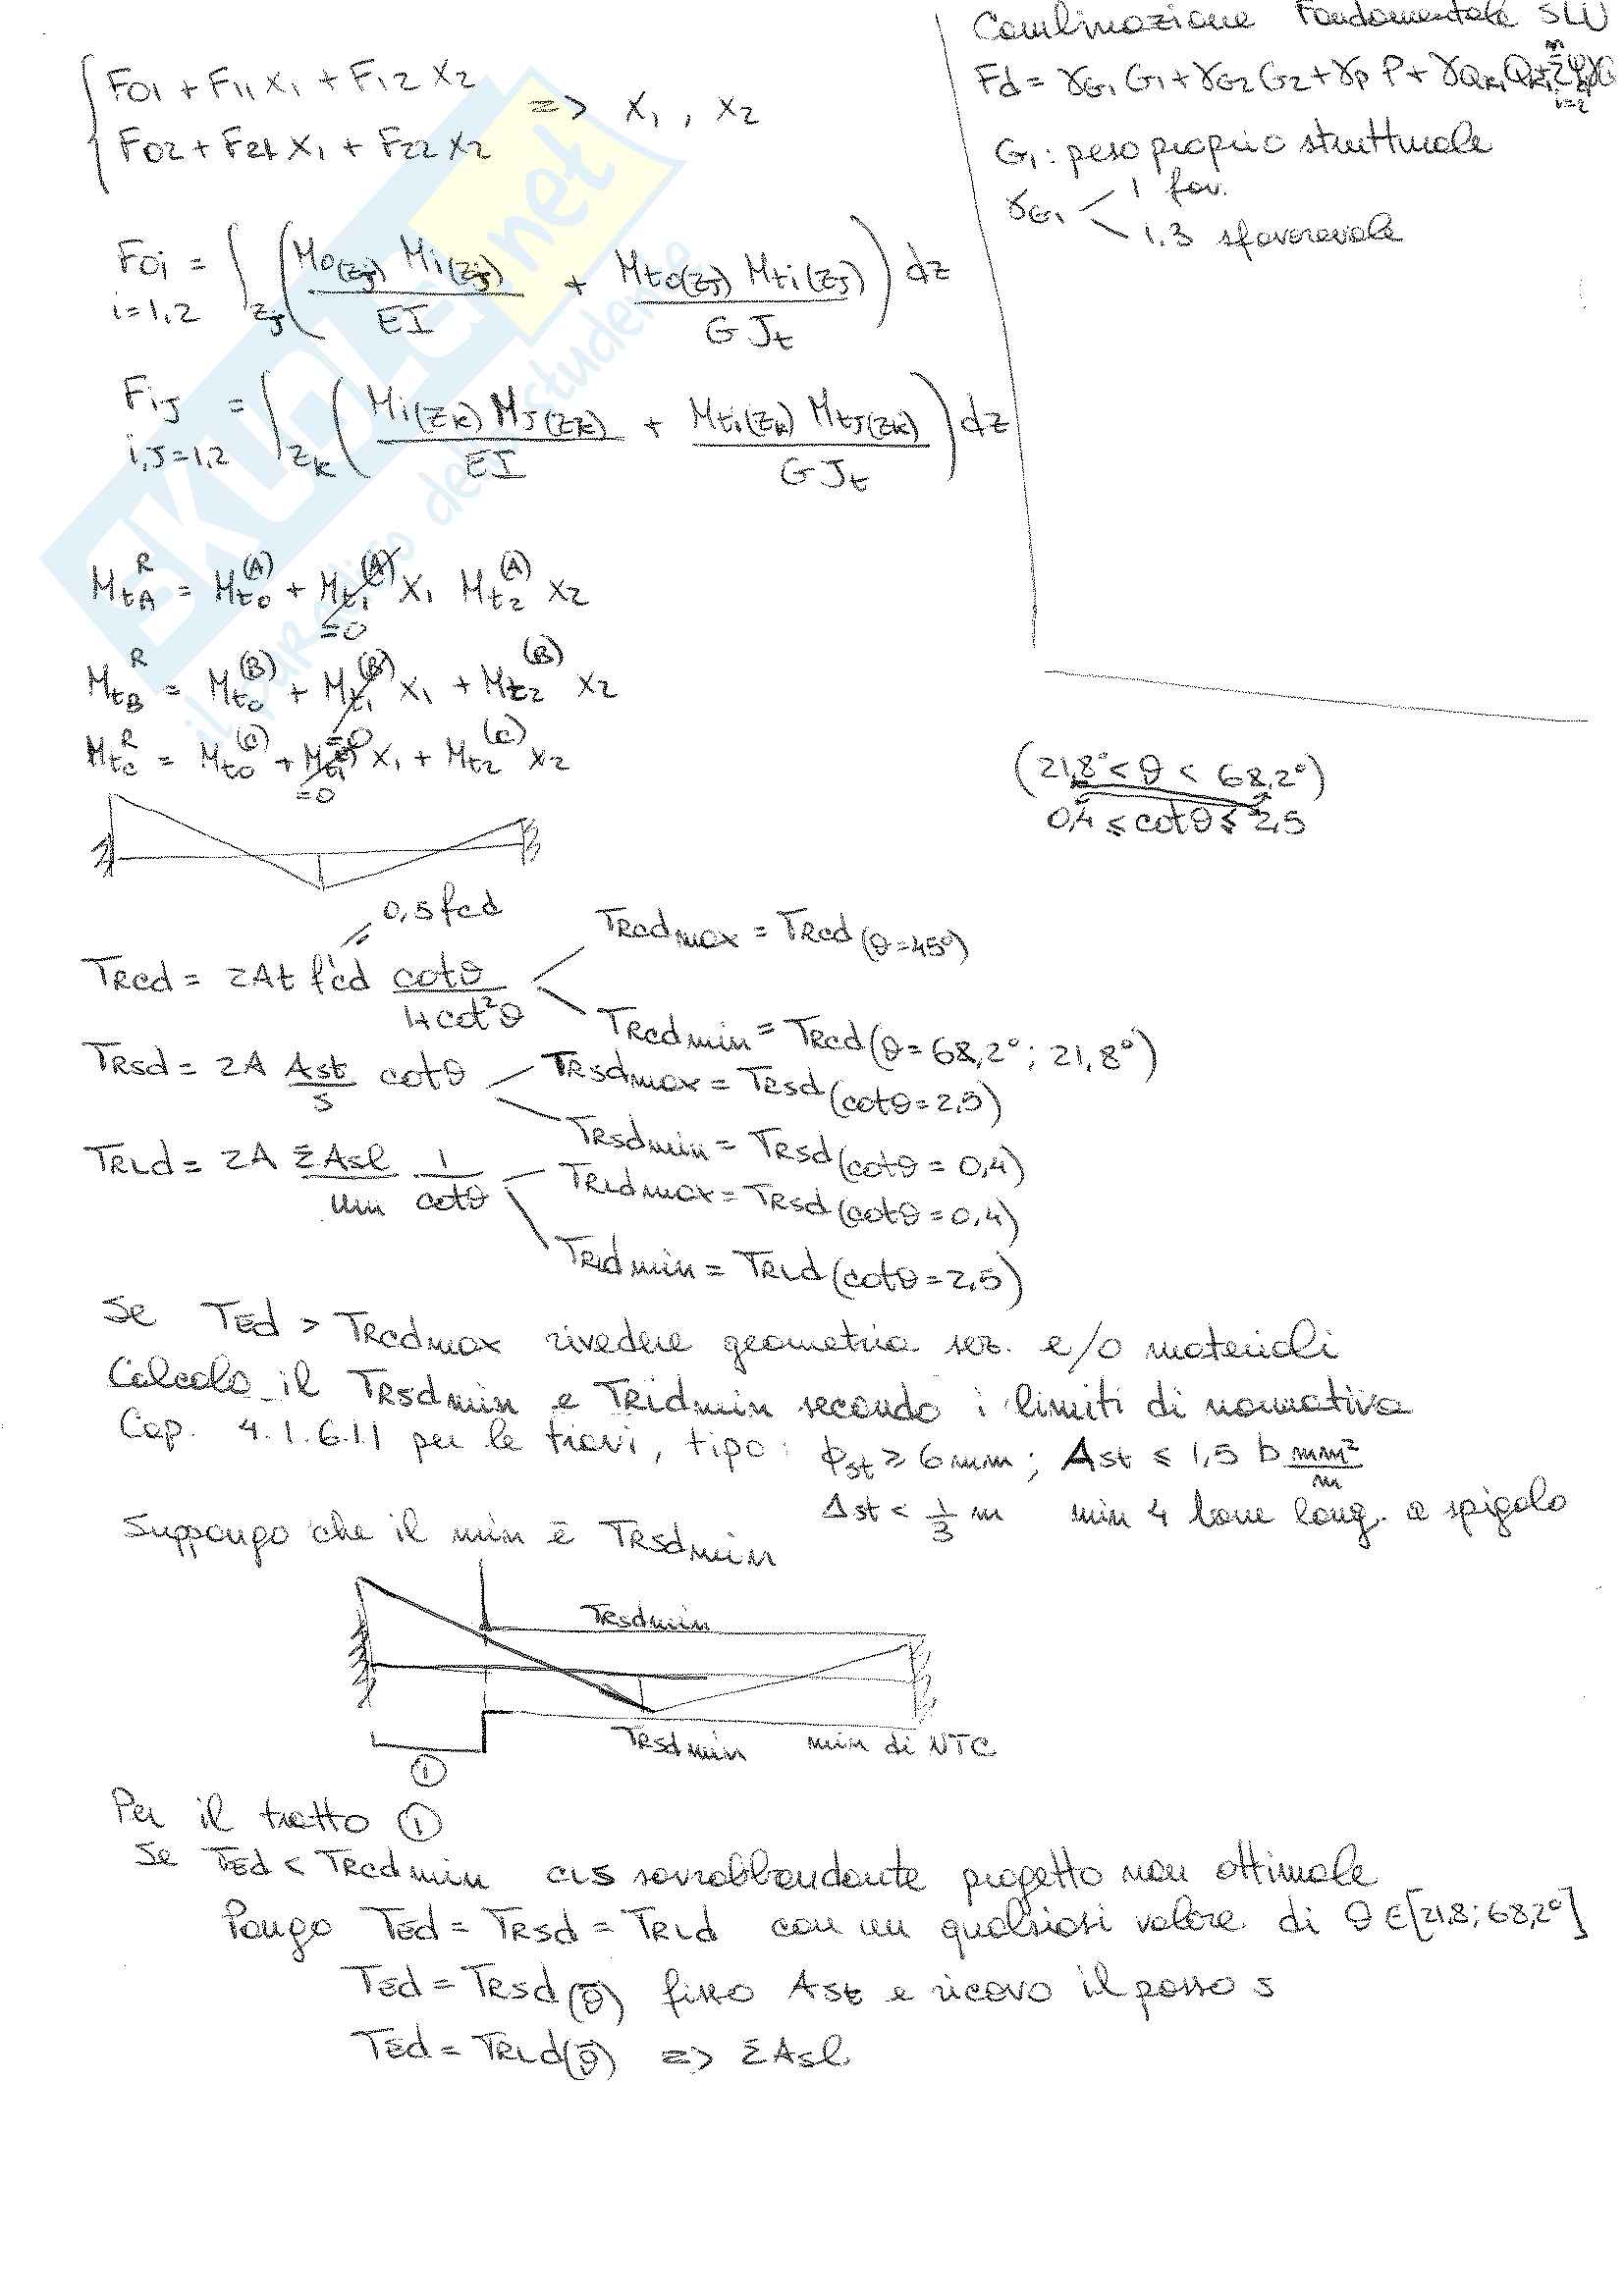 F01 + F11 X1 + F12 X2
F02 + F21 X1 + F22 X2
=> X1 , X2
Combinazione Fondamentale SLU
Fd = γG1 G1 + γG2 G2 + γP P + γQk1 Qk1 +
G1 : peso proprio strutturale
γG1 1 fav.
1,3 sfavorevole
F0i = ∫zJ ( M0(zJ) Mi(zJ) / EI + Mt0(zJ) Mti(zJ) / G Jt ) dz
i=1,2
FiJ = ∫zk ( Mi(zk) MJ(zk) / EI + Mti(zk) MtJ(zk) / G Jt ) dz
i,J=1,2
MtA^R = Mt0^(A) + Mt1^(A) X1 Mt2^(A) X2
=0
MtB^R = Mt0^(B) + Mt1^(B) X1 + Mt2^(B) X2
=0
MtC^R = Mt0^(C) + Mt1 X1 + Mt2^(C) X2
=0
(21,8° < θ < 68,2°)
0,4 ≤ cotθ ≤ 2,5
0,5 fcd
TRcd = 2At f'cd cotθ / 1+cot²θ
TRcdmax = TRcd (θ=45°)
TRcdmin = TRcd (θ=68,2° ; 21,8°)
TRsd = 2A Ast / s cotθ
TRsdmax = TRsd (cotθ=2,5)
TRsdmin = TRsd (cotθ = 0,4)
TRLd = 2A ΣAsl / um 1 / cotθ
TRLdmax = TRsd (cotθ = 0,4)
TRldmin = TRLd (cotθ = 2,5)
Se TEd > TRcdmax rivedere geometria sez. e/o materiali
Calcolo il TRsdmin e TRldmin secondo i limiti di normativa
Cap. 4.1.6.1.1 per le travi, tipo: ϕst ≥ 6mm ; Ast ≤ 1,5 b mm²/m
Δst < 1/3 m min 4 barre long. a spigolo
Suppongo che il min è TRsdmin
TRsdmin
TRsdmin min di NTC
1
Per il tratto 1
Se TEd < TRcdmin cls sovrabbondante progetto non ottimale
Pongo TEd = TRsd = TRLd con un qualsiasi valore di θ ∈ [21,8 ; 68,2°]
TEd = TRsd(θ̄) fisso Ast e ricavo il passo s
TEd = TRLd(θ̄) => ΣAsl
SKUOLA.net
il paradiso dello studente